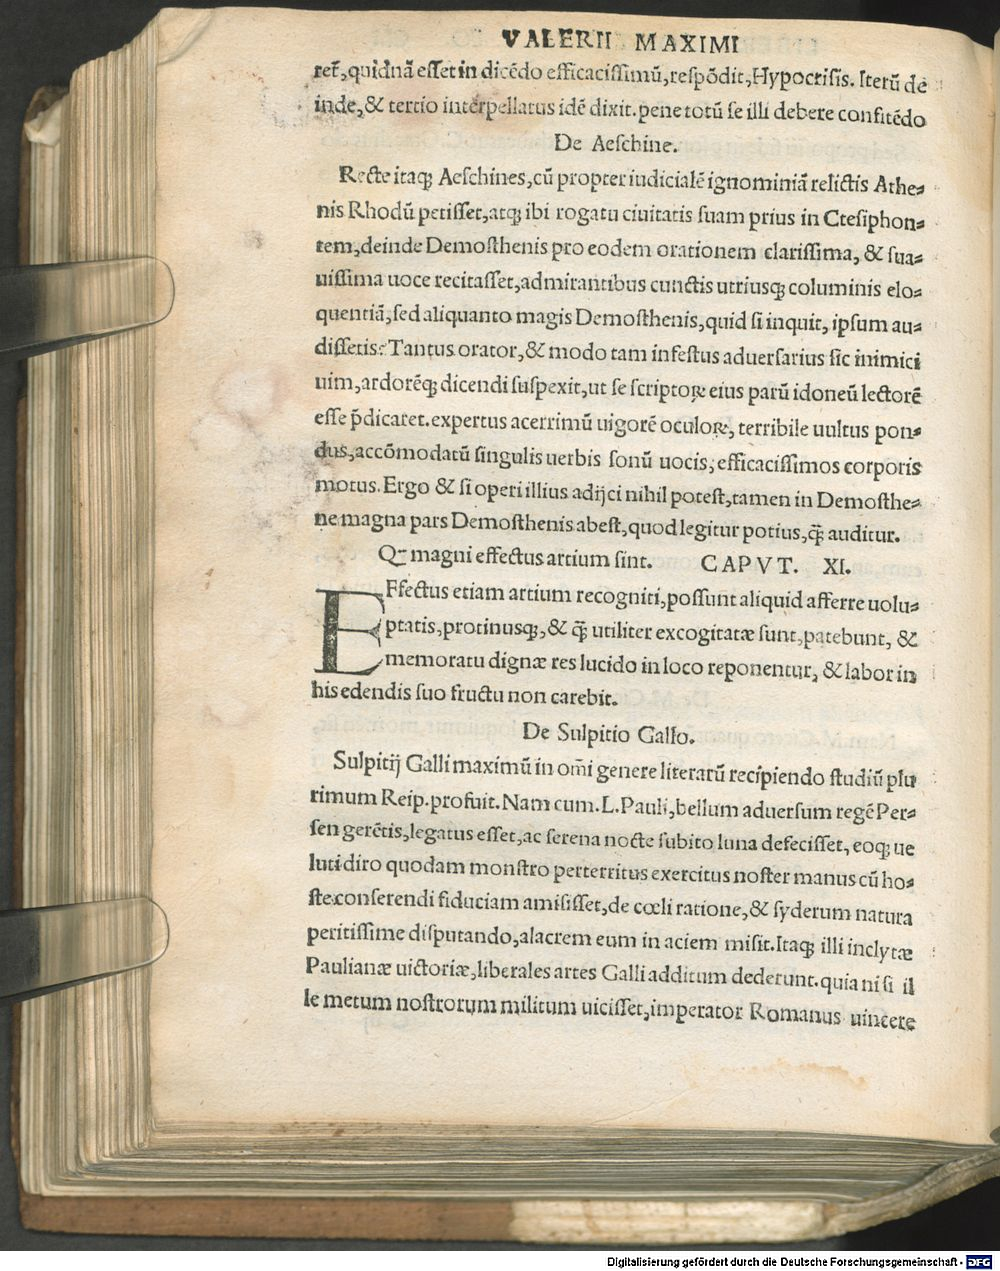 VALERII MAXIMI
ret̃, quidnã esset in dicẽdo efficacissimũ, respõdit, Hypocrisis. Iterũ de
inde, & tertio interpellatus idẽ dixit. pene totũ se illi debere confitẽdo
De Aeschine.
Recte itaqꝫ Aeschines, cũ propter iudicialẽ ignominiã relictis Athe⸗
nis Rhodũ petisset, atqꝫ ibi rogatu ciuitatis suam prius in Ctesiphon⸗
tem, deinde Demosthenis pro eodem orationem clarissima, & sua⸗
uissima uoce recitasset, admirantibus cunctis utriusqꝫ columinis elo⸗
quentiã, sed aliquanto magis Demosthenis, quid si inquit, ipsum au⸗
dissetis? Tantus orator, & modo tam infestus aduersarius sic inimici
uim, ardorẽqꝫ dicendi suspexit, ut se scriptoꝝ eius parũ idoneũ lectorẽ
esse p̃dicaret. expertus acerrimũ uigorẽ oculoꝝ, terribile uultus pon⸗
dus, accõmodatũ singulis uerbis sonũ uocis, efficacissimos corporis
motus. Ergo & si operi illius adijci nihil potest, tamen in Demosthe⸗
ne magna pars Demosthenis abest, quod legitur potius, q̃ꝫ auditur.
Q magni effectus artium sint. CAPVT. XI.
EFfectus etiam artium recogniti, possunt aliquid afferre uolu⸗
ptatis, protinusqꝫ, & q̃ꝫ utiliter excogitatæ sunt, patebunt, &
memoratu dignæ res lucido in loco reponentur, & labor in
his edendis suo fructu non carebit.
De Sulpitio Gallo.
Sulpitij Galli maximũ in om̃i genere literarũ recipiendo studiũ plu
rimum Reip. profuit. Nam cum. L. Pauli, bellum aduersum regẽ Per⸗
sen gerẽtis, legatus esset, ac serena nocte subito luna defecisset, eoqꝫ ue
luti diro quodam monstro perterritus exercitus noster manus cũ ho⸗
ste conserendi fiduciam amisisset, de cœli ratione, & syderum natura
peritissime disputando, alacrem eum in aciem misit. Itaqꝫ illi inclytæ
Paulianæ uictoriæ, liberales artes Galli additum dederunt. quia ni si il
le metum nostrorum militum uicisset, imperator Romanus uincere
Digitalisierung gefördert durch die Deutsche Forschungsgemeinschaft - DFG